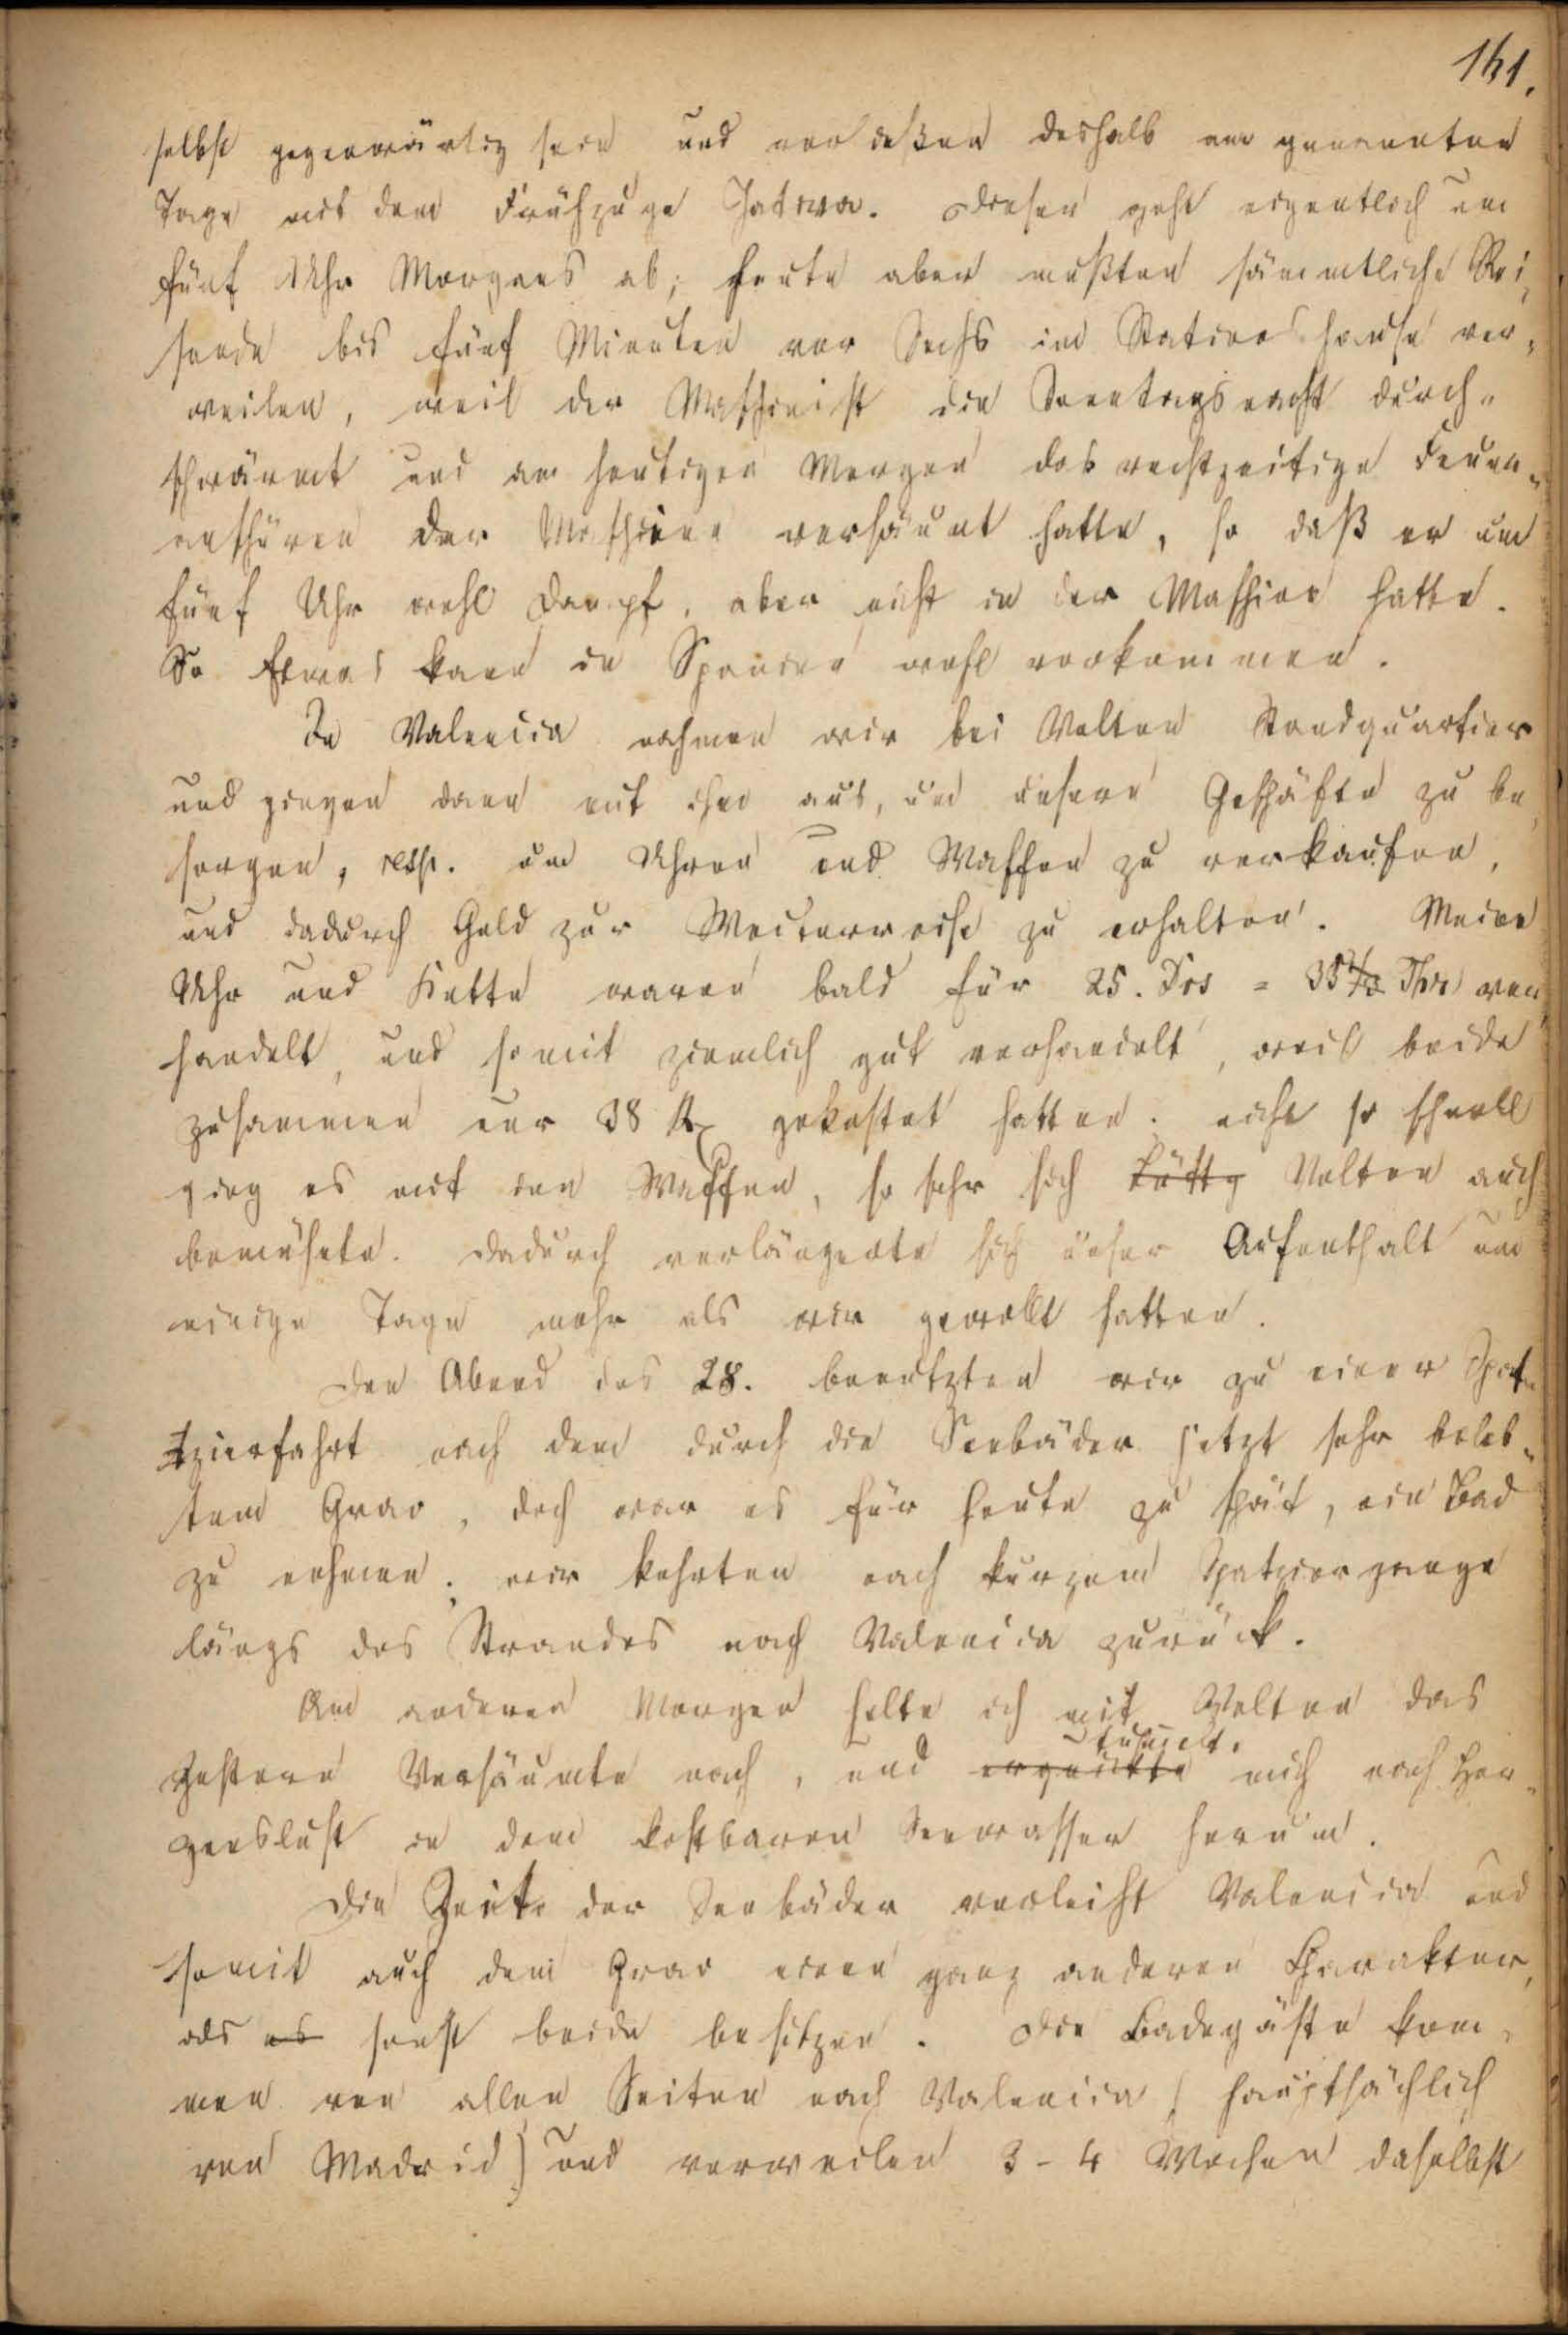 141.
selbst gegenwärtig sein und verließen deshalb am genannten
Tage mit dem Frühzuge Jativa. Dieser geht eigentlich um
fünf Uhr Morgens ab; heute aber mußten sämmtliche Rei¬
sende bis fünf Minuten vor Sechs im Stationshause ver¬
weilen, weil der Maschinist die Sonntagsnacht durch¬
schwärmt und am heutigen Morgen das rechtzeitige Feuer¬
anschüren der Maschine versäumt hatte, so daß er um
fünf Uhr wohl Dampf, aber nicht in der Maschine hatte.
So Etwas kann in Spanien wohl vorkommen.
In Valencia nahmen wir bei Velten Standquartier
und gingen dann mit ihm aus, um unsere Geschäfte zu be¬
sorgen, resp. um Uhren und Waffen zu verkaufen,
und dadurch Geld zur Weiterreise zu erhalten. Meine
Uhr und Kette waren bald für 25. Drs = 35 1/3 Thr ver¬
handelt, und somit ziemlich gut verhandelt, weil beide
zusammen nur 38 Rx gekostet hatten; nicht so schnell
ging es mit den Waffen, so sehr sich Velten auch
bemühete. Dadurch verlängerte sich unser Aufenthalt um
einige Tage mehr als wir gewollt hatten.
Den Abend des 28. benutzten wir zu einer Spa¬
tzierfahrt nach dem durch die Seebäder jetzt sehr beleb¬
tem Grao, doch war es für heute zu spät, ein Bad
zu nehmen; wir kehrten nach kurzem Spatziergange
längs des Strandes nach Valencia zurück.
Am anderen Morgen holte ich mit Velten das
tummelte
gestern Versäumte nach, und erquickte mich nach Her¬
zenslust in dem kostbaren Seewasser herum.
Die Zeit der Seebäder verleiht Valencia und
somit auch dem Grao einen ganz anderen Charakter,
als es sonst beide besitzen. Die Badegäste kom¬
men von allen Seiten nach Valencia (hauptsächlich
von Madrid) und verweilen 3-4 Wochen daselbst